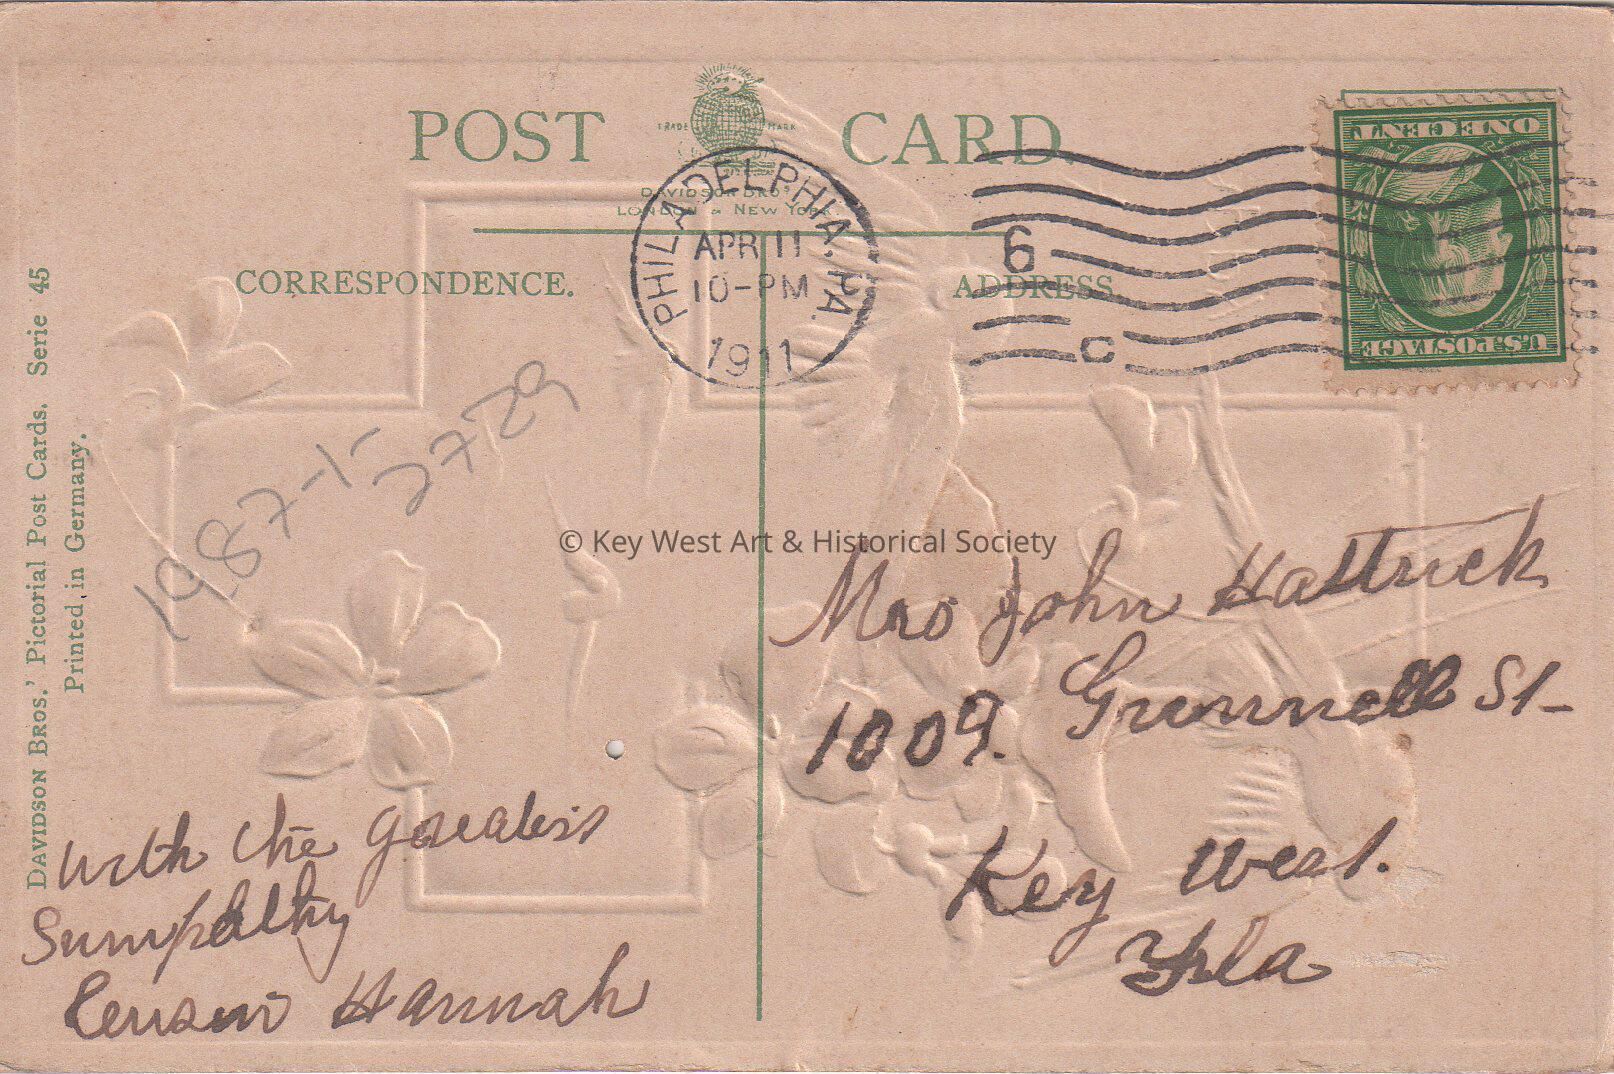 POST CARD
TRADE MARK
DAVIDSON BROS
LONDON & NEW YORK
CORRESPONDENCE.
ADDRESS
PHILADELPHIA, PA.
APR 11
10-PM
1911
6
C
ONE CENT
U.S. POSTAGE
DAVIDSON BROS.' Pictorial Post Cards. Serie 45
Printed in Germany.
1987-1-
2729
© Key West Art & Historical Society
Mrs John Hattrick
1009. Grunnell St-
Key West.
Fla
With the
Sumpathy
Hannah